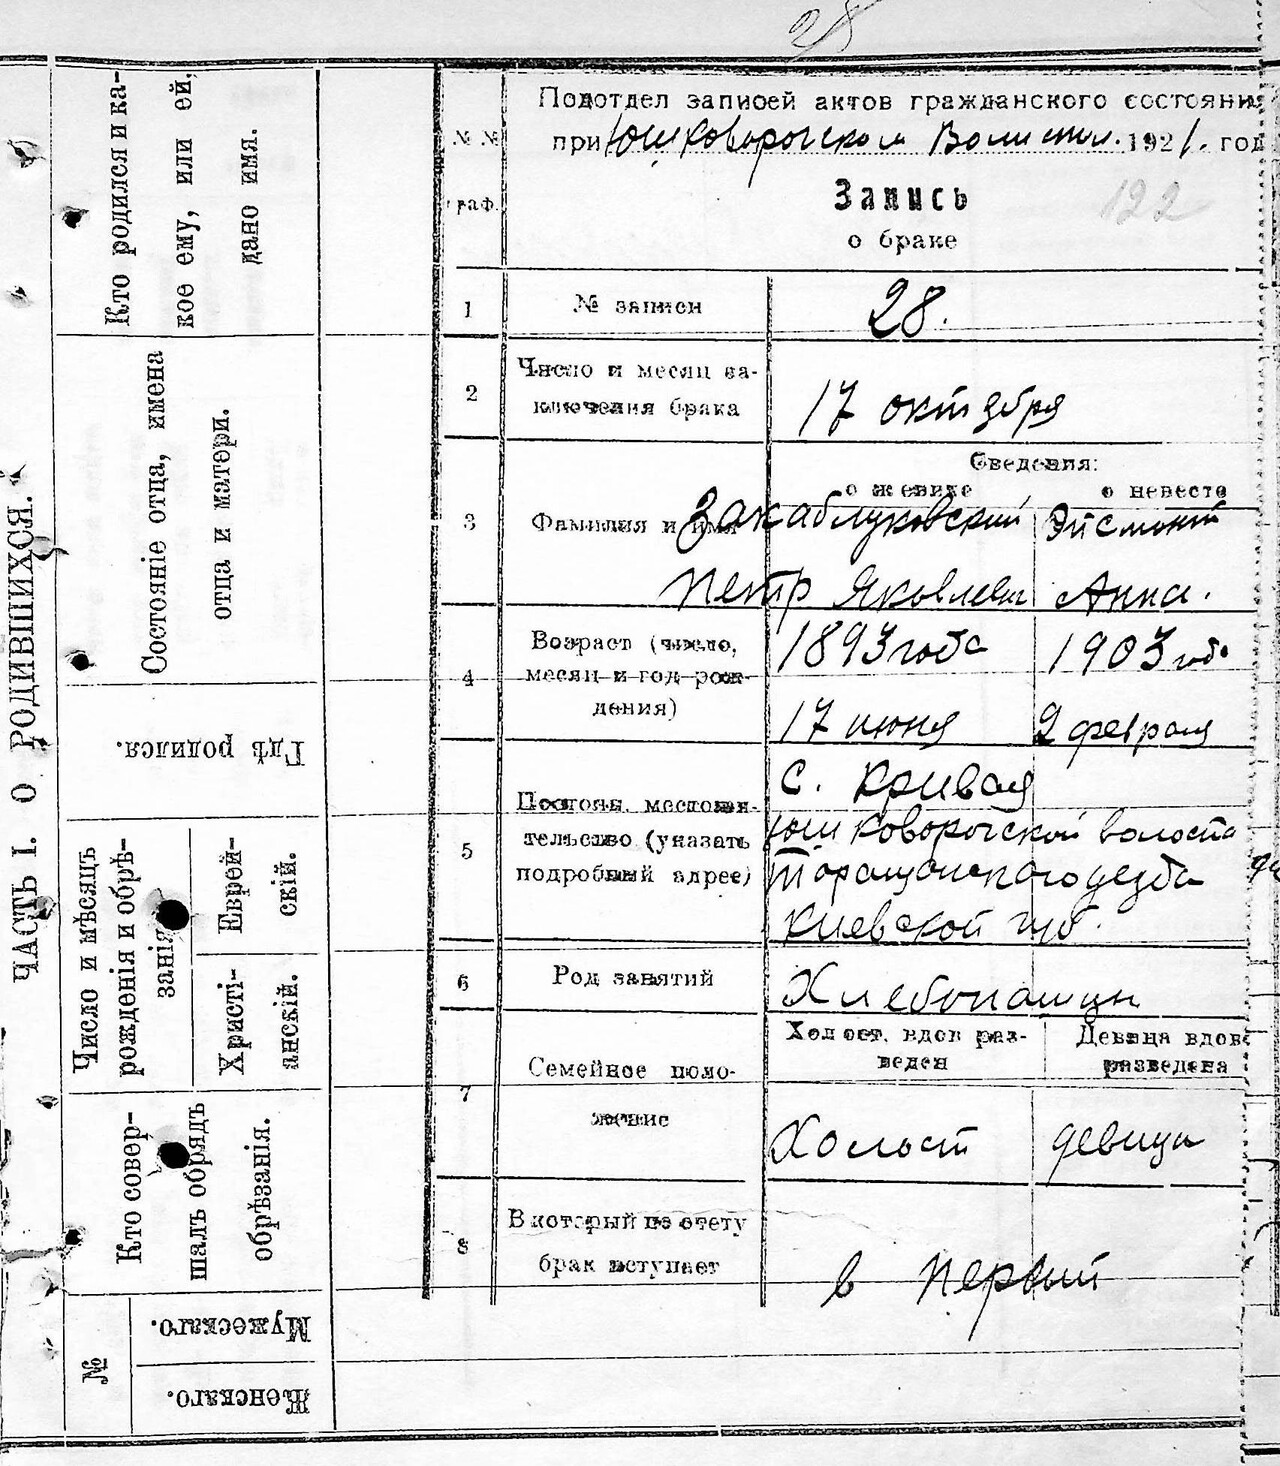 28
ЧАСТЬ I. О РОДИВШИХСЯ.
Кто родился и ка-
кое ему, или ей,
дано имя.
Состояніе отца, имена
отца и матери.
Гдѣ родился.
Число и мѣсяцъ
рожденія и обрѣ-
занія
Еврей-
скій.
Христі-
анскій.
Кто совер-
шалъ обрядъ
обрѣзанія.
№
Мужескаго.
Женскаго.
№ №
граф.
Подотдел записей актов гражданского состояния
при Юшковорогском Волисполк. 1921. год
Запись
122
о браке
1
№ записи
28.
2
Число и месяц за-
ключения брака
17 октября
Сведения:
о женихе
о невесте
3
Фамилия и имя
Закаблуковский
Эйсмонт
Петр Яковлевич
Анна.
4
Возраст (число,
месяц и год рож-
дения)
1893 года
1903 года
17 июня
2 февраля
5
Постоян. местожи-
тельство (указать
подробный адрес)
с. Кривая
Юшковорогской волости
Таращанского уезда
Киевской губ.
6
Род занятий
Хлебопашцы
7
Семейное поло-
жение
Холост, вдов раз-
веден
Девица вдов
разведена
Холост
девица
8
В который по счету
брак вступает
в первый